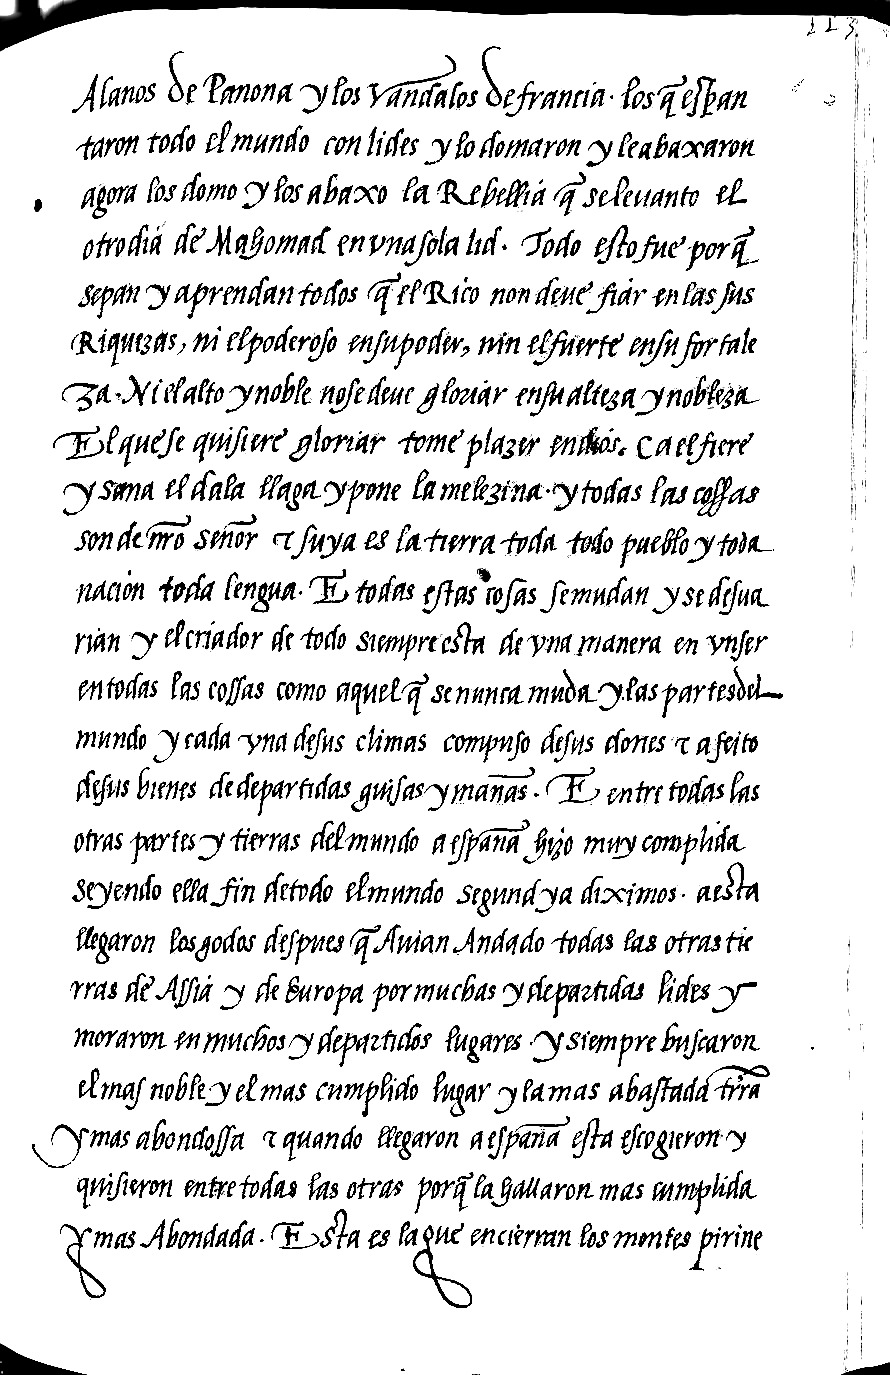 113
Alanos de Panona y los vandalos de francia. los q̃ espan
taron todo el mundo con lides y lo domaron y le abaxaron
agora los domo y los abaxo la Rebellia q̃ se leuanto el
otro dia de Mahomad en vna sola lid. Todo esto fue porq̃
sepan y aprendan todos q̃ el Rico non deue fiar en las sus
Riquezas, ni el poderoso en su poder, nin el fuerte en su fortale
za. Ni el alto y noble no se deue gloriar en su alteza y nobleza
El que se quisiere gloriar tome plazer en dios. Ca el fiere
y sana el da la llaga y pone la melezina. y todas las cossas
son de nr̃o señor τ suya es la tierra toda todo pueblo y toda
nacion toda lengua. E todas estas cosas se mudan y se desua
rian y el criador de todo siempre esta de vna manera en vn ser
en todas las cossas como aquel q̃ se nunca muda y las partes del
mundo y cada vna de sus climas compuso de sus dones τ afeito
de sus bienes de departidas guisas y mañas. E entre todas las
otras partes y tierras del mundo a españa hizo muy complida
seyendo ella fin de todo el mundo segund ya diximos. a esta
llegaron los godos despues q̃ Auian Andado todas las otras tie
rras de Assia y de Europa por muchas y departidas lides y
moraron en muchos y departidos lugares. y siempre buscaron
el mas noble y el mas cumplido lugar y la mas abastada tr̃ra
y mas abondossa τ quando llegaron a españa esta escogieron y
quisieron entre todas las otras porq̃ la hallaron mas cumplida
y mas Abondada. Esta es la que encierran los montes pirine